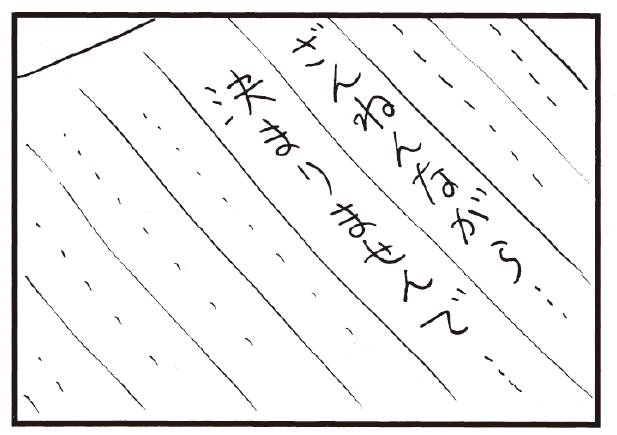 ざんねんながら…
決まりませんで…